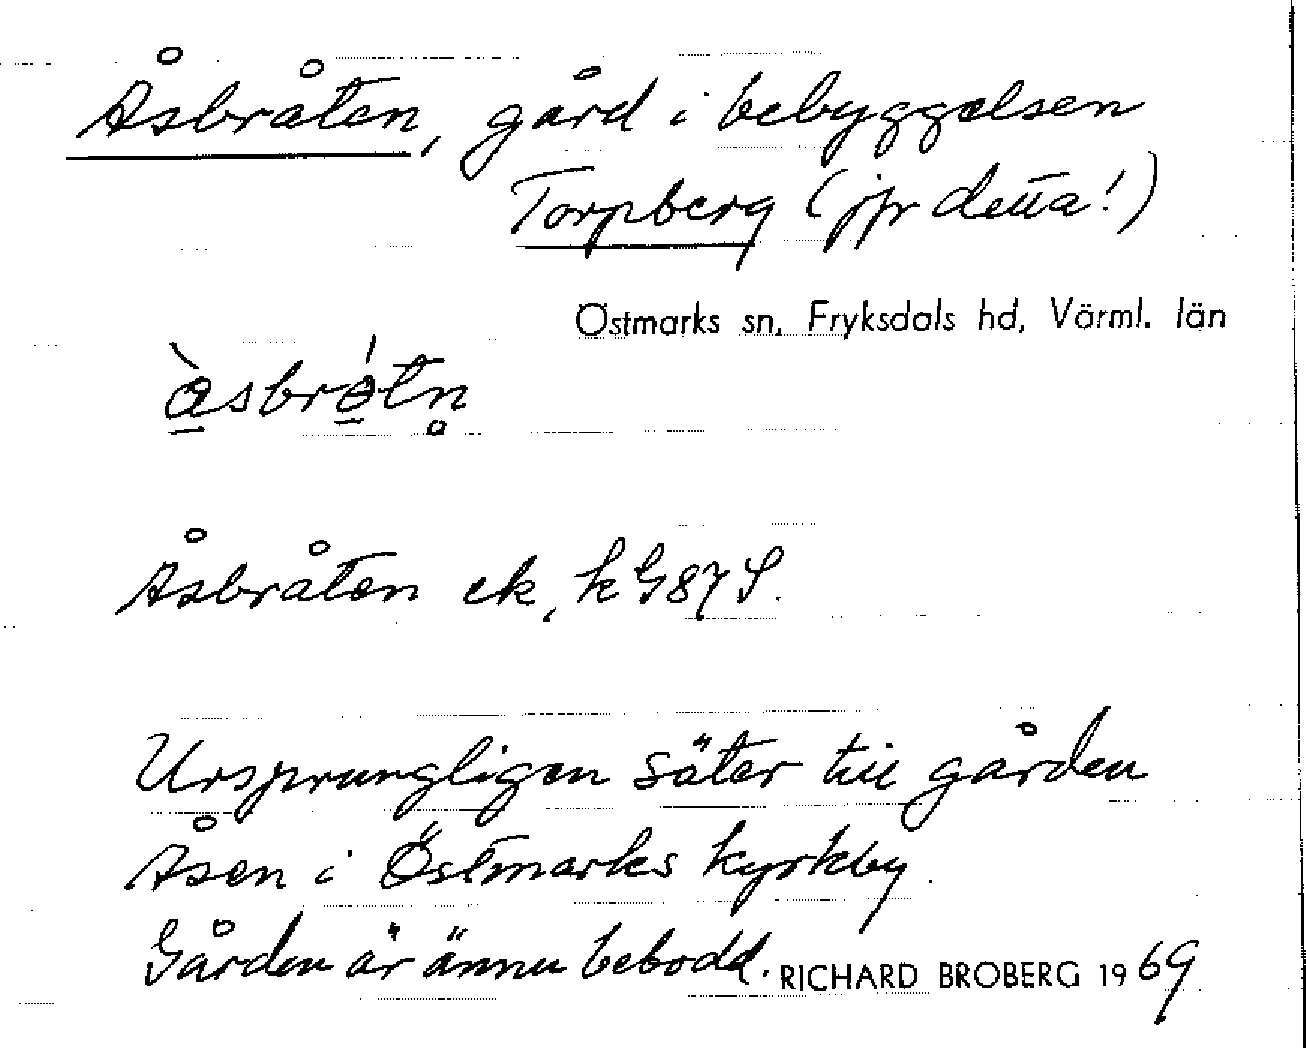 Åsbråten, gård i bebyggelsen
Torpberg (jfr detta!)
Östmarks sn, Fryksdals hd, Värml. län
Åsbråten ek, kG87S.
Ursprungligen säter till gården
Åsen i Östmarks kyrkby.
Gården är ännu bebodd. RICHARD BROBERG 1969